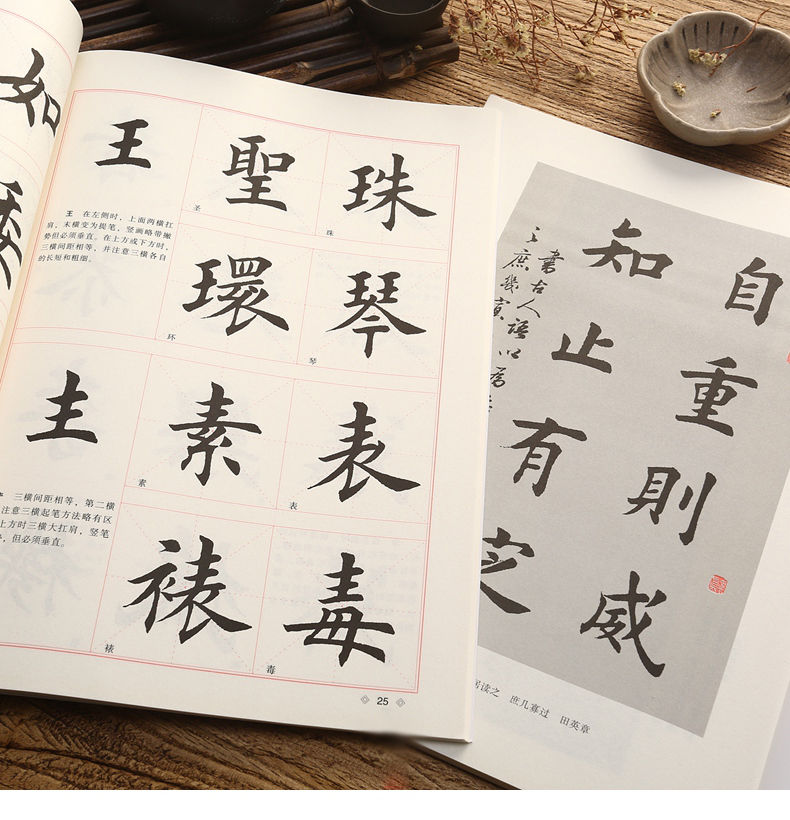 如
王
聖
珠
圣
珠
王 在左侧时，上面两横扛
肩，末横变为提笔，竖画略带撇
势但必须垂直。在上方或下方时，
三横间距相等，并注意三横各自
的长短和粗细。
環
琴
环
琴
素
表
素
表
三横间距相等，第二横
注意三横起笔方法略有区
上方时三横大扛肩，竖笔
，但必须垂直。
裱
毒
裱
毒
25
自重則威
知止有定
書古人語以為
庶幾寡
居读之 庶几寡过 田英章